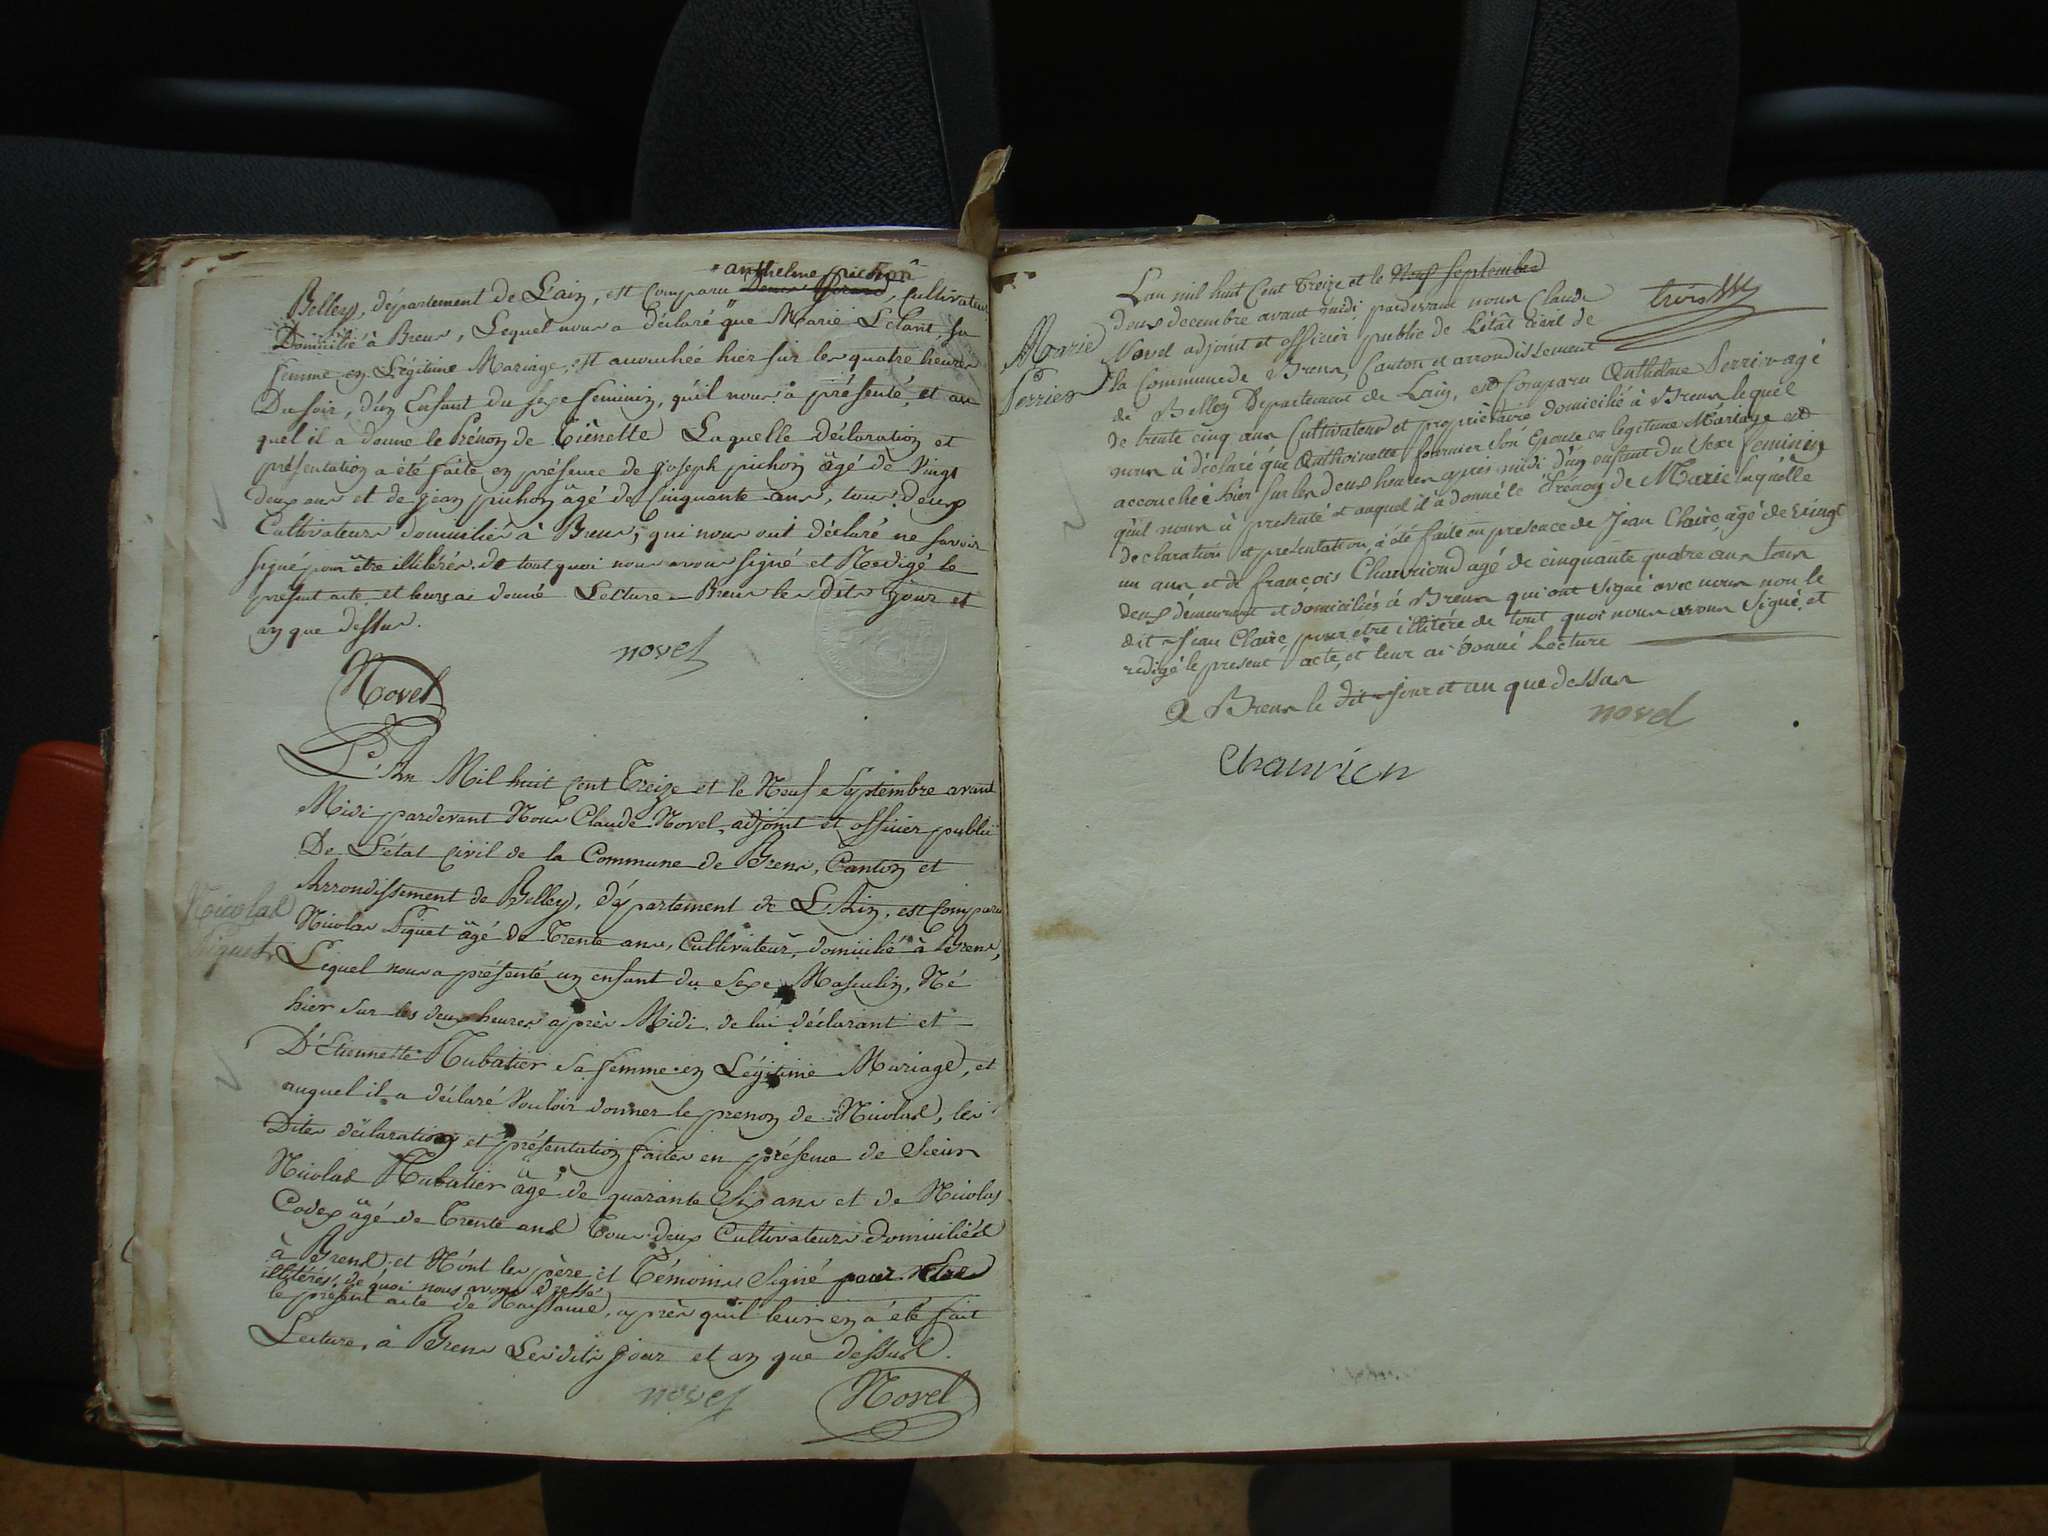 anthelme pichon
Belley, département de L'ain, est comparu Denis, Cultivateur
Domicilié à Brens, Lequel nous a déclaré que Marie Lelant, sa
femme en Légitime Mariage, est accouchée hier sur les quatre heures
Du soir, d'un Enfant du sexe feminin, qu'il nous a présenté, et au
quel il a donné le Prénom de Tiènette Laquelle déclaration et
présentation a été faite en présence de joseph pichon âgé de Vingt
deux ans et de jean pichon âgé de Cinquante ans, tous deux
Cultivateurs domiciliés à Brens, qui nous ont déclaré ne savoir
signé pour être illitérés. de tout quoi nous avons signé et Redigé le
présent acte et leurs ai donné Lecture - Brens les Dits jour et
an que dessus.
novel
Novel
L'An Mil huit Cent Treize et le Neuf Septembre avant
Midi pardevant Nous Claude Novel, adjoint et officier public
De L'état Civil de la Commune de Brens, Canton et
Arrondissement de Belley, département de L'Ain, est Comparu
Nicolas
Piquet
Nicolas Piquet âgé de Trente ans, Cultivateur, domicilié à Brens,
Lequel nous a présenté un enfant du Sexe Masculin, Né
hier sur les deux heures après Midi de lui déclarant et
D'Etiennette Tubatier sa femme en Légitime Mariage, et
auquel il a déclaré Vouloir donner le prenom de Nicolas, les
Dites déclaration et présentation faites en présence de Sieur
Nicolas Tubatier âgé de quarante Six ans et de Nicolas
Codex âgé de Trente ans Tous deux Cultivateurs domiciliés
à Brens, et N'ont les père et Témoins Signé pour etre
illitérés, de quoi nous avons dressé
le présent acte de Naissance, après qu'il leur en a été fait
Lecture, à Brens Les dits jour et an que dessus.
novel
Novel
Lan mil huit Cent Treize et le Neuf Septembre
deux decembre avant midi pardevant nous Claude
trois
Marie
Perrier
Novel adjoint et officier public de L'état Civil de
la Commune de Brens, Canton et arrondissement
de Belley Departement de Lain, est Comparu Anthelme Perrier agé
de trente cinq ans Cultivateur et propriétaire domicilié à Brens lequel
nous à déclaré que Anthoinette fournier son Epouse en legitime Mariage est
accouchée hier sur les deux heures apres midi d'un enfant du Sexe feminin
qu'il nous à presenté et auquel il a donné le Prénom de Marie laquelle
declaration et presentation à été faite en presence de Jean Claire agé de Vingt
un ans et de françois Chauriond agé de cinquante quatre ans tous
deux demeurant et domiciliés à Brens qui ont Signé avec nous non le
dit Jean Claire pour etre illitéré de tout quoi nous avons Signé et
redigé le present acte, et leur ai donné Lecture
A Brens le dit jour et an que dessus
novel
Chaurien